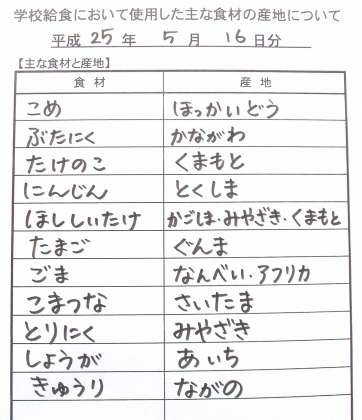 学校給食において使用した主な食材の産地について
平成 25 年 5 月 16 日分
【主な食材と産地】
食材 産地
こめ ほっかいどう
ぶたにく かながわ
たけのこ くまもと
にんじん とくしま
ほししいたけ かごしま・みやざき・くまもと
たまご ぐんま
ごま なんべい・アフリカ
こまつな さいたま
とりにく みやざき
しょうが あいち
きゅうり ながの